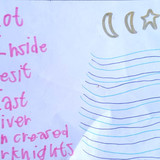 ot
nside
esit
ast
iver
n creased
rknights